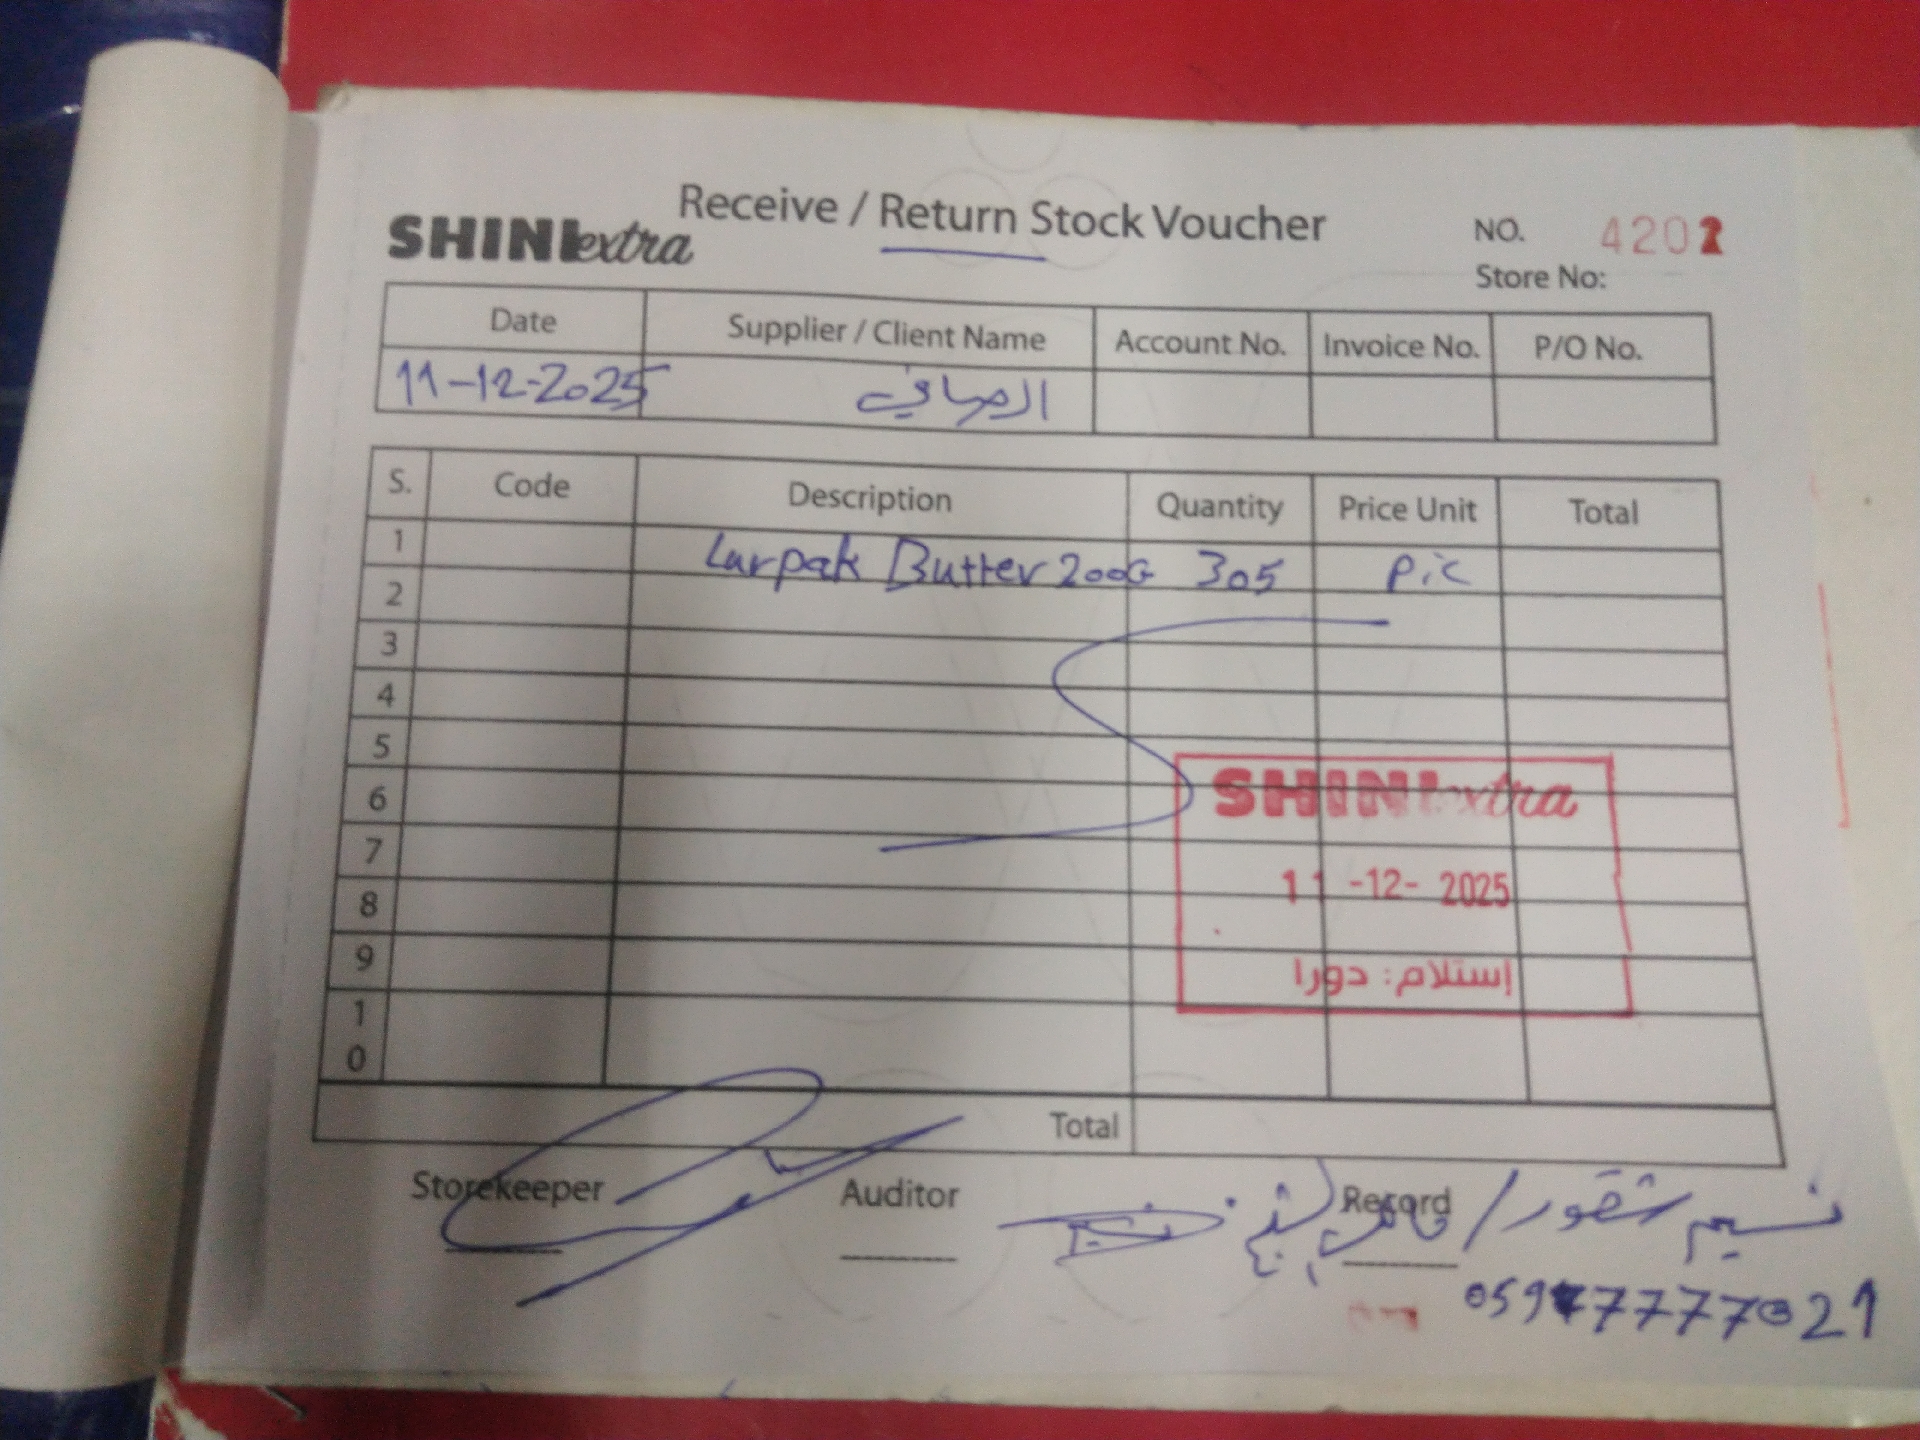 Receive / Return Stock Voucher
SHINI extra
NO. 4202
Store No:
Date Supplier / Client Name Account No. Invoice No. P/O No.
11-12-2025 الصافي
S. Code Description Quantity Price Unit Total
1 Lurpak Butter 200G 305 Pic
2
3
4
5
6
7
8
9
10
SHINI extra
11 -12- 2025
إستلام: دورا
Total
Storekeeper Auditor Record
نسيم شقور /